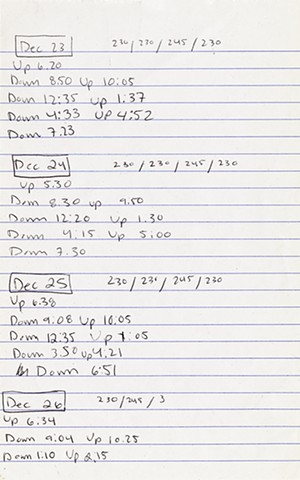 Dec 23 230/270/245/230
Up 6.20
Down 8.50 Up 10:05
Down 12:35 Up 1:37
Down 4:33 Up 4:52
Down 7.23
Dec 24 230/230/245/230
Up 5.30
Down 8.30 up 9.50
Down 12:20 Up 1.30
Down 4.15 Up 5:00
Down 7.30
Dec 25 230/230/245/230
Up 6:38
Down 9:08 Up 10:05
Down 12:35 Up 1:05
Down 3.50 up 4:21
Down 6:51
Dec 26 230/245/3
Up 6:34
Down 9:04 Up 10.25
Down 1:10 Up 2,15